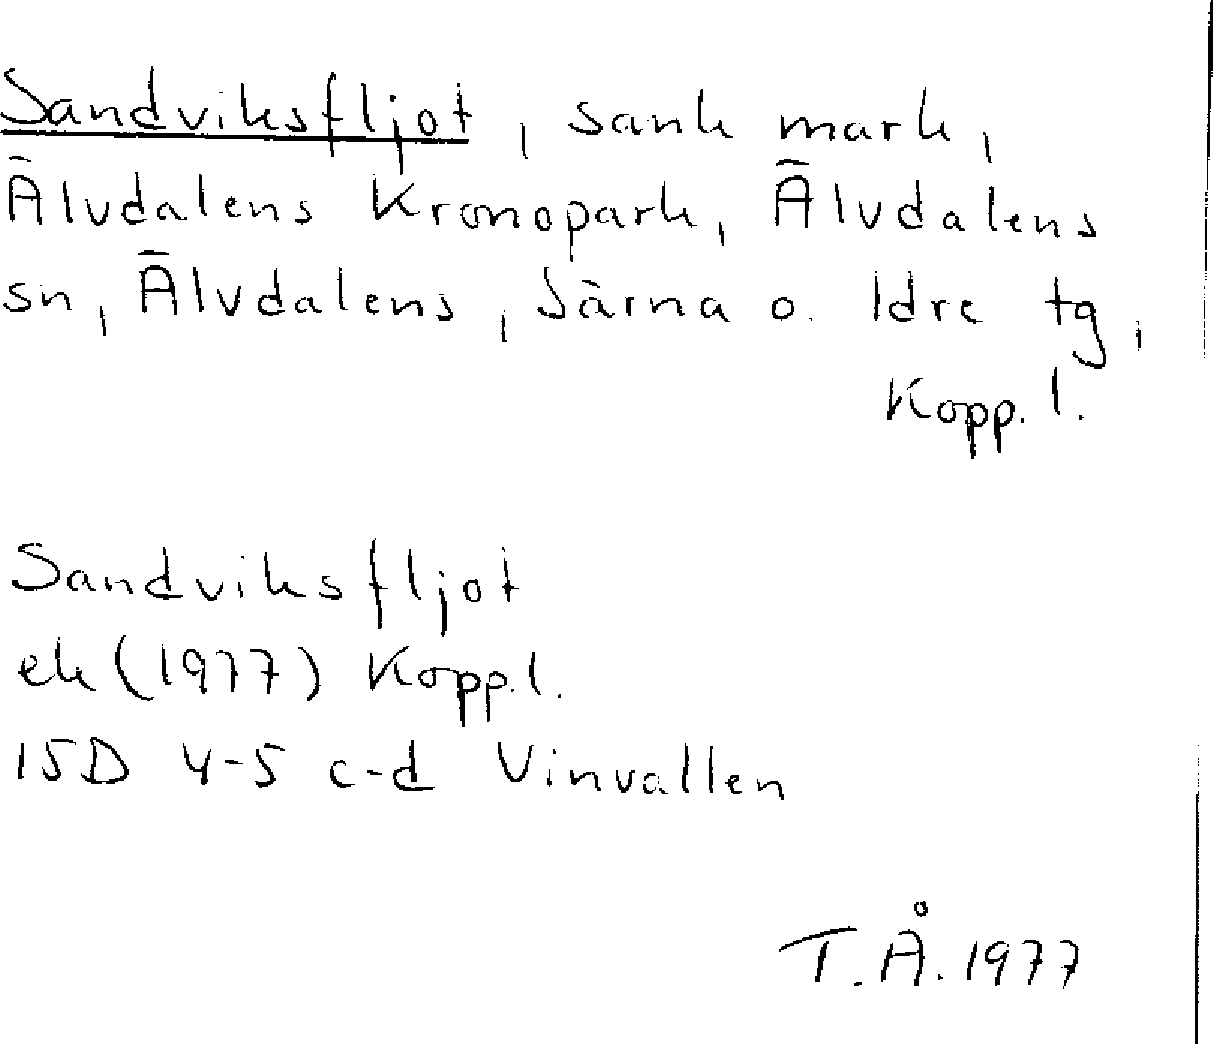 Sandviksfljot, sank mark,
Älvdalens Kronopark, Älvdalens
sn, Älvdalens, Särna o. Idre tg,
Kopp. l.
Sandviksfljot
ek (1977) Kopp. l.
15D 4-5 c-d Vinvallen
T.Å. 1977